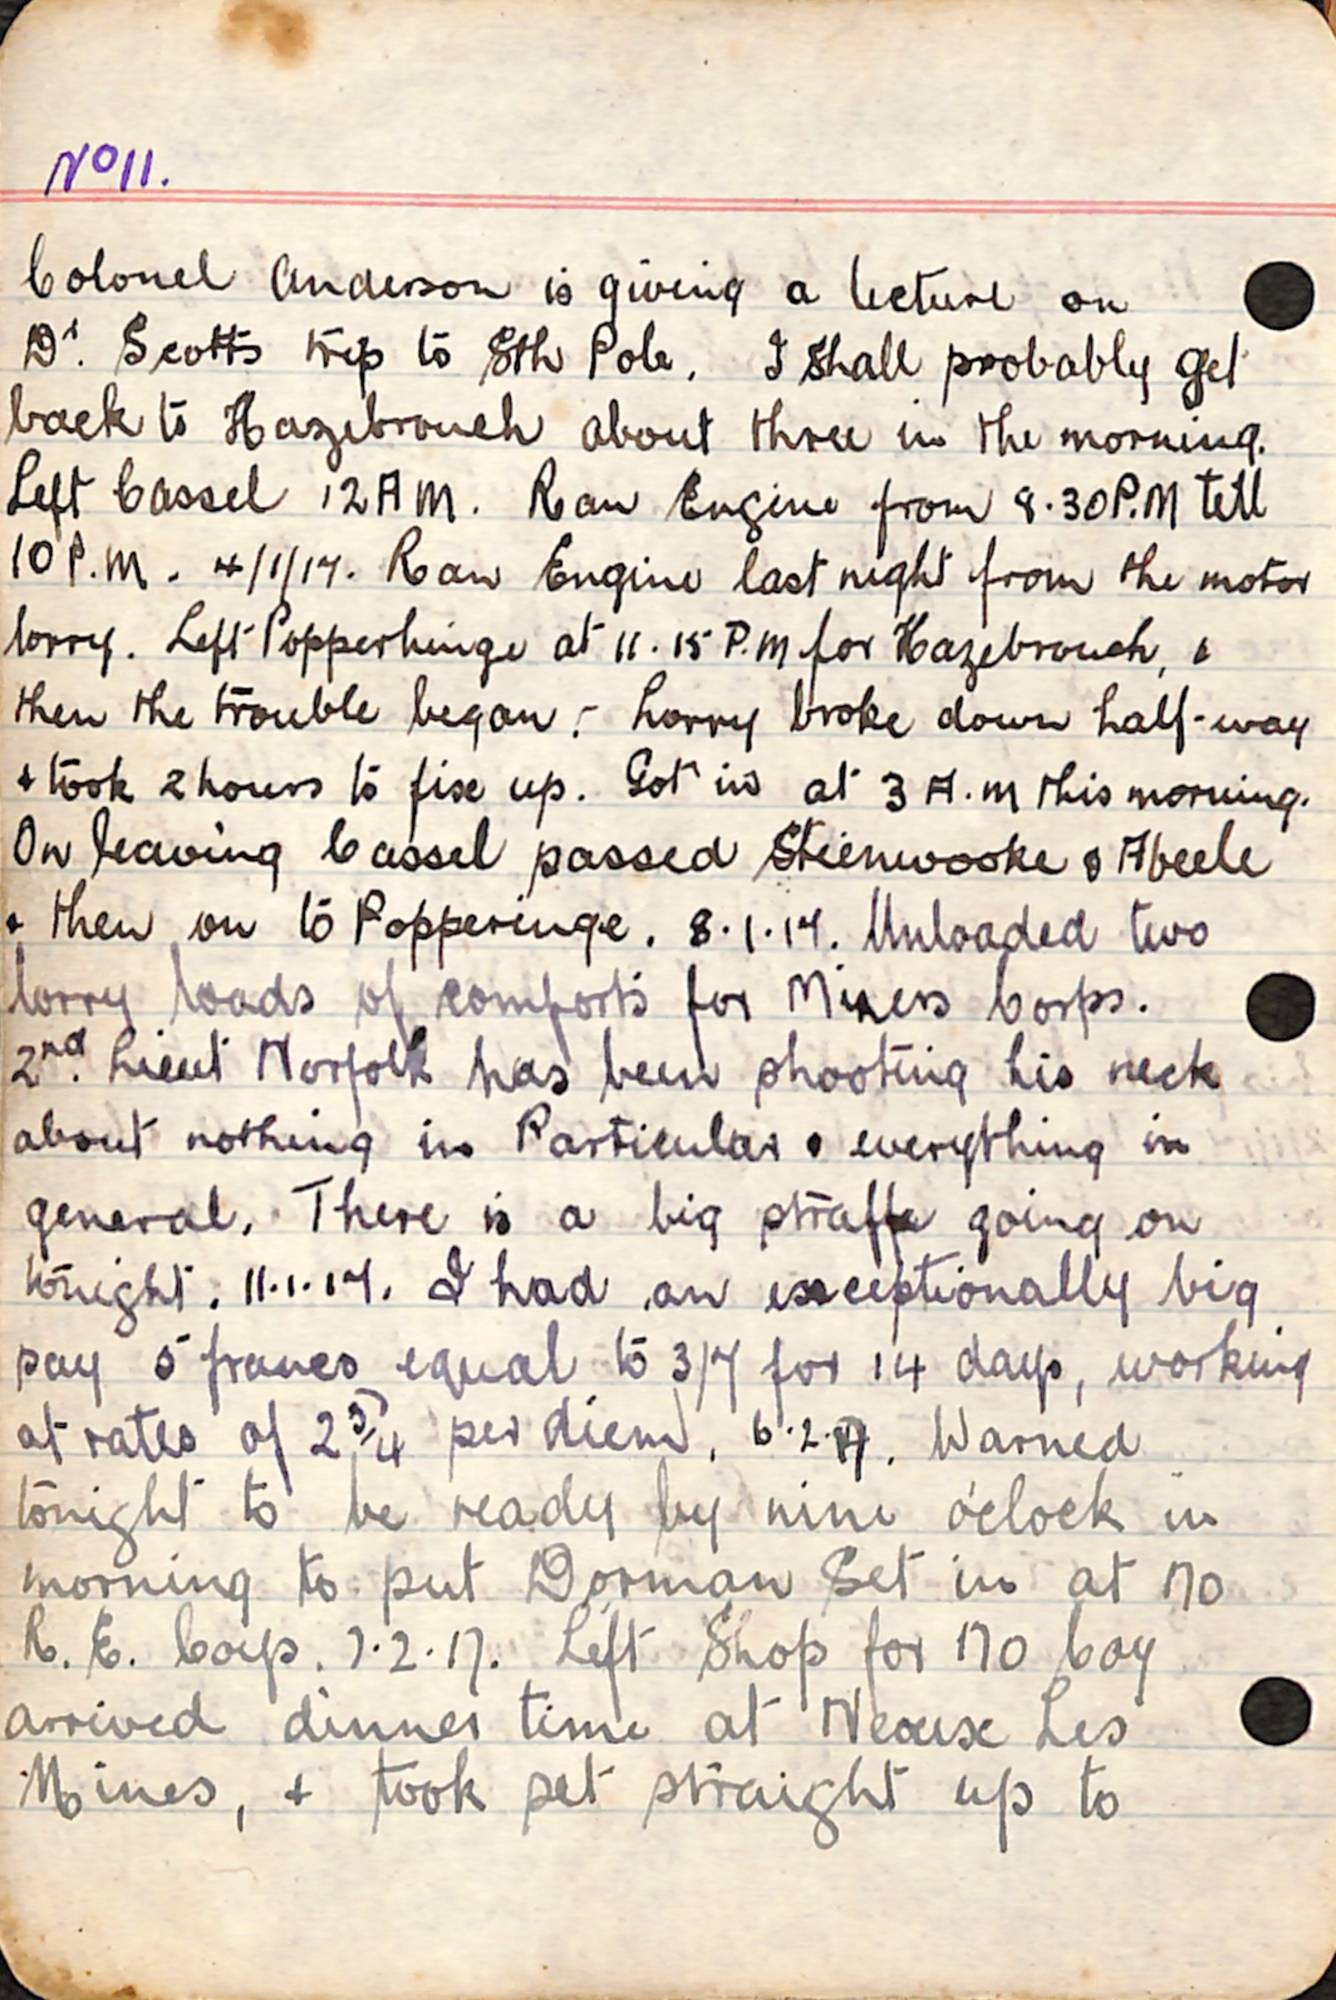 No 11.
Colonel Anderson is giving a lecture on
Dr. Scotts trip to Sth Pole. I shall probably get
back to Hazebrouch about three in the morning.
Left Cassel 12 A M. Ran Engine from 8.30 P.M till
10 P.M. 4/1/17. Ran Engine last night from the motor
lorry. Left Popperhinge at 11.15 P.M for Hazebrouch, &
then the trouble began :- Lorry broke down half-way
& took 2 hours to fix up. Got in at 3 A.m this morning.
On leaving Cassel passed Steenwooke & Abeele
& then on to Popperinge. 8.1.17. Unloaded two
lorry loads of comforts for Miners Corps.
2nd. Lieut Norfolk has been shooting his neck
about nothing in Particular & everything in
general. There is a big straffe going on
tonight. 11.1.17. I had an exceptionally big
pay 5 francs equal to 3/7 for 14 days, working
at rates of 2 3/4 per diem. 6.2.17. Warned
tonight to be ready by nine o'clock in
morning to put Dorman Set in at 170
R. E. Coys. 7.2.17. Left Shop for 170 Coy
arrived dinner time at Neaux Les
Mines, & took set straight up to